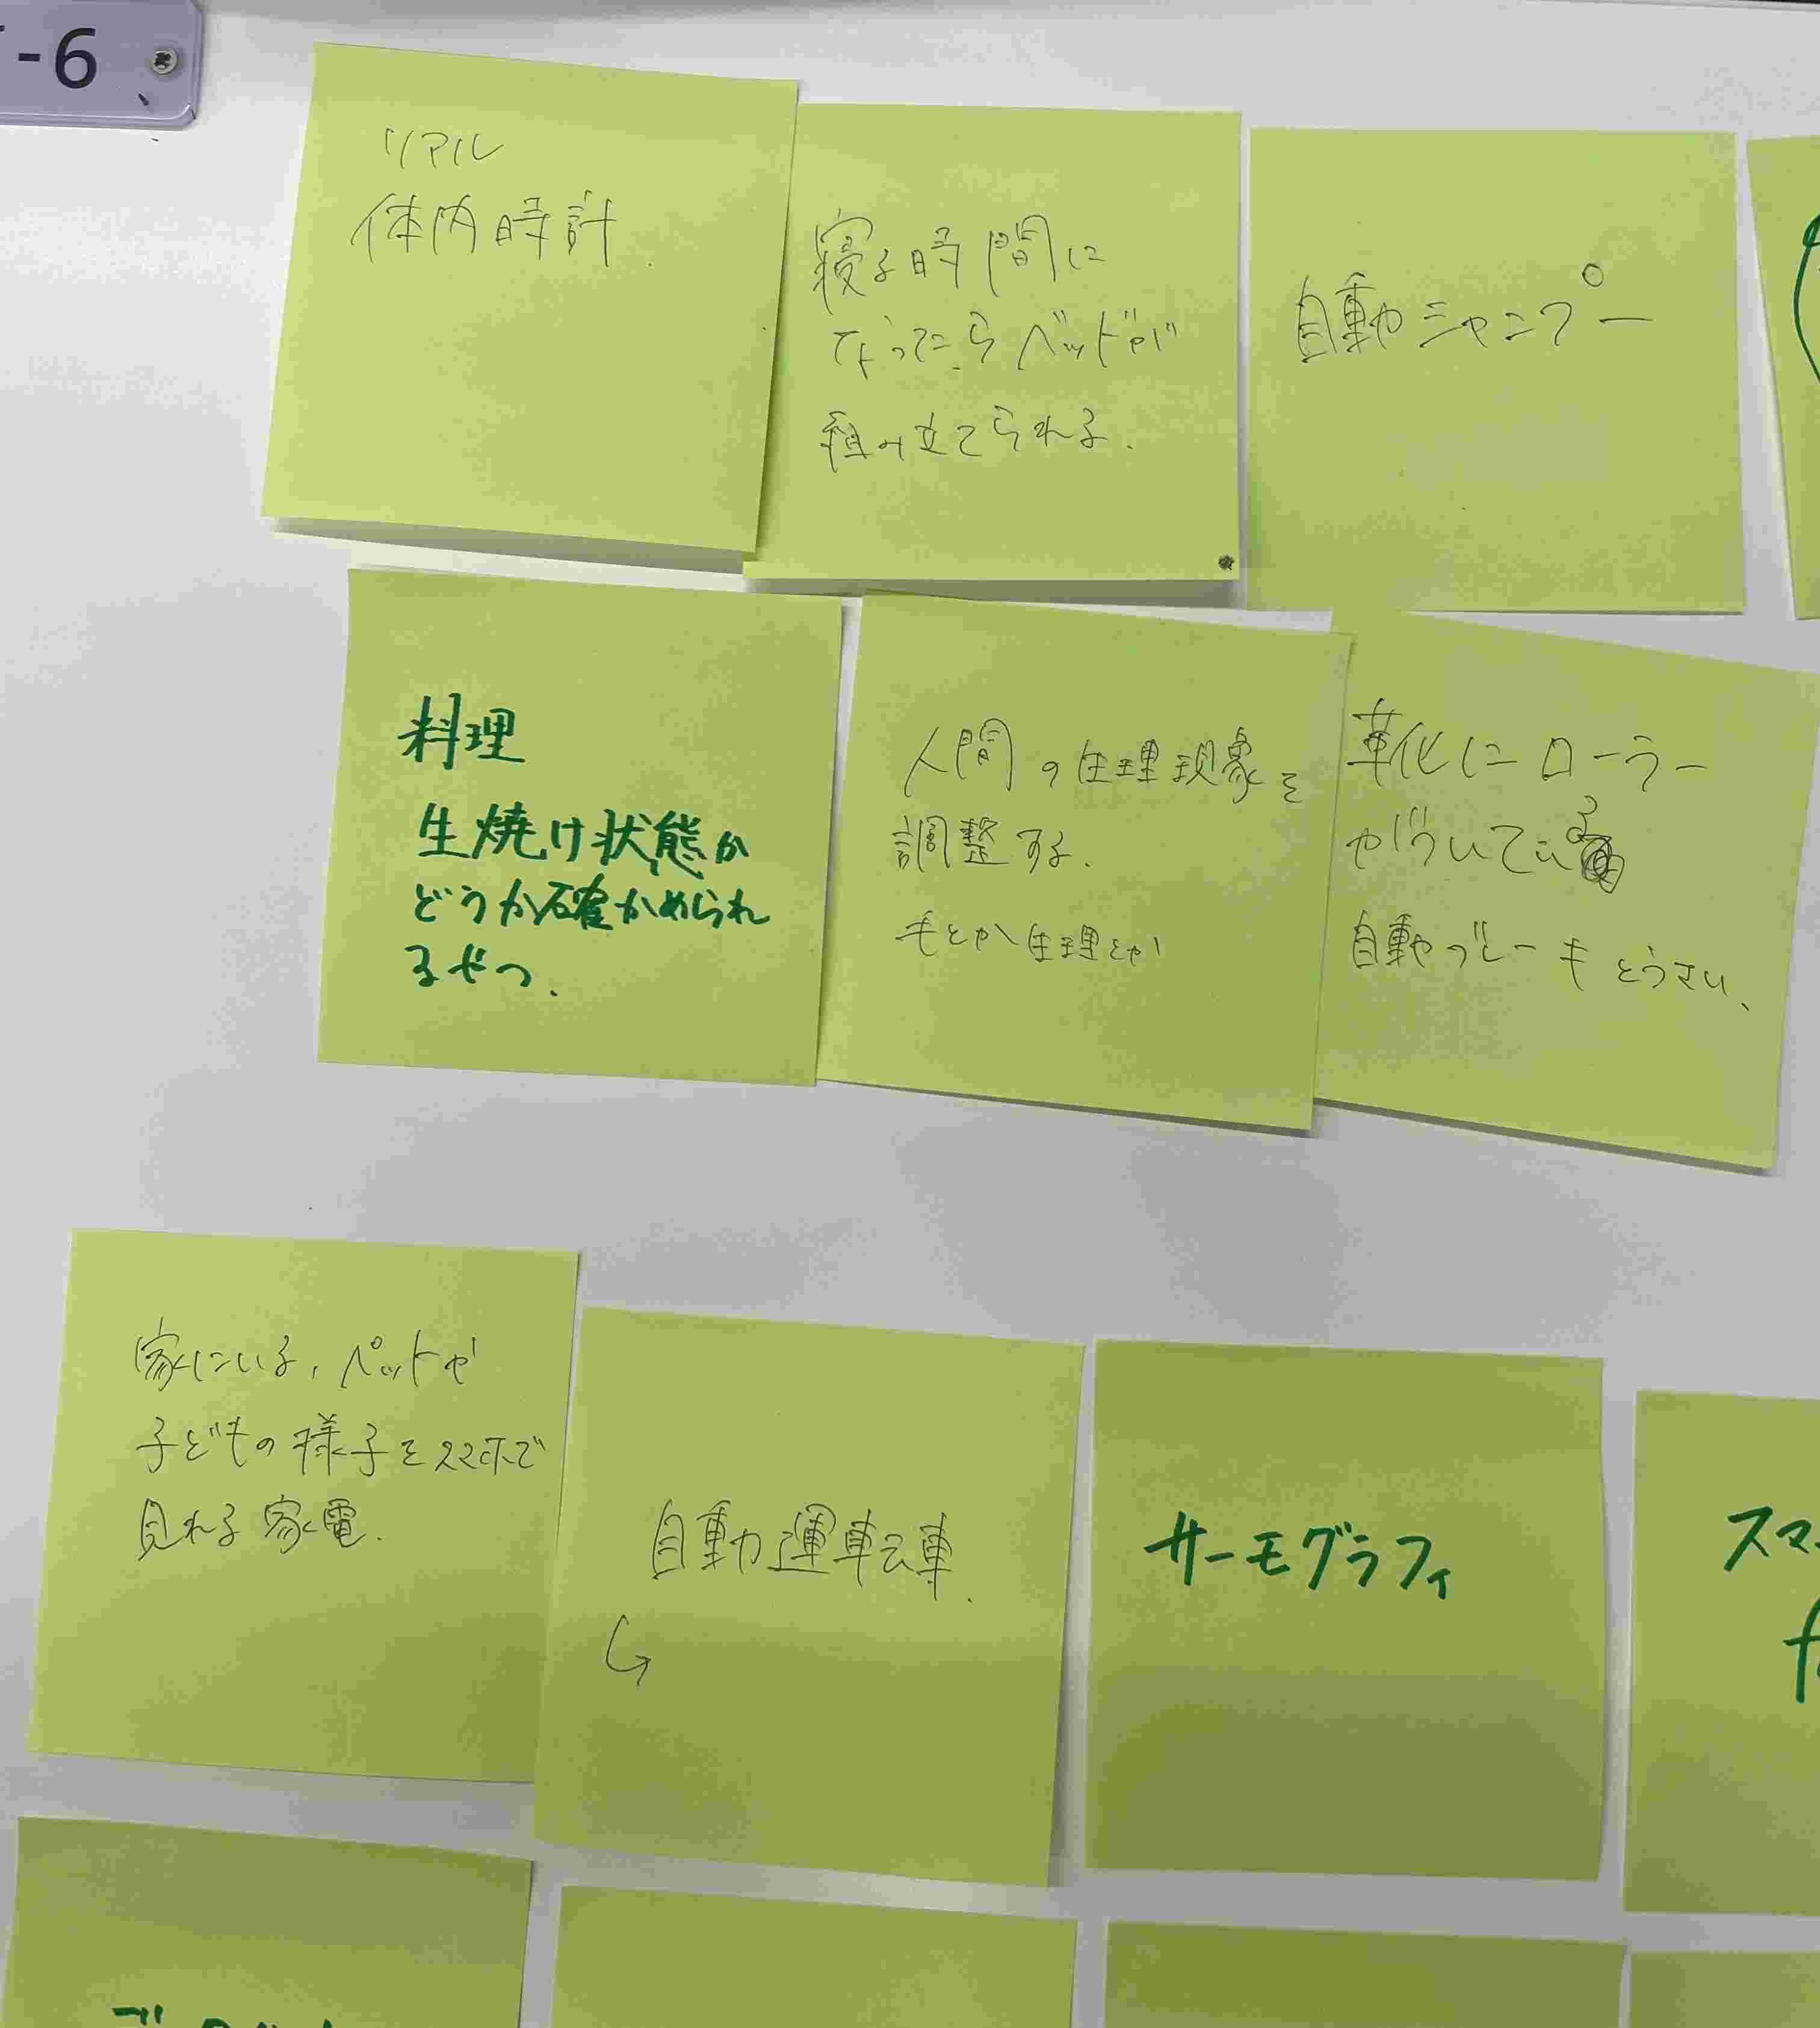 -6
リアル
体内時計.
寝る時間に
なったらベッドが
組み立てられる.
自動シャンプー
料理
生焼け状態か
どうか確かめられ
るやつ.
人間の生理現象を
調整する.
毛とか生理とか
革化にローラー
がついている
自動ブレーキとうさい、
家にいる、ペットや
子どもの様子をスマホで
見れる家電.
自動運転車.
サーモグラフィ
スマ